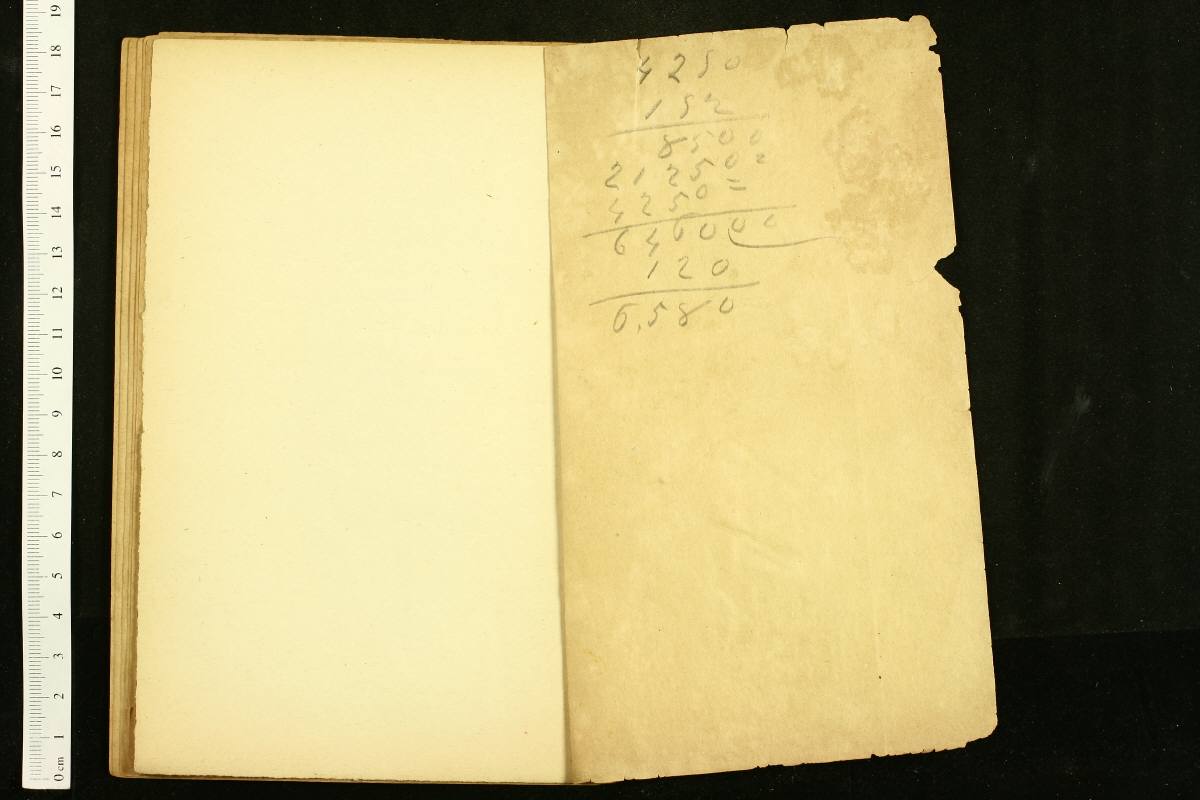 4250
152
8500
21250=
4250=
646000
120
6.580
19
18
17
16
15
14
13
12
11
10
9
8
7
6
5
4
3
2
1
0 cm